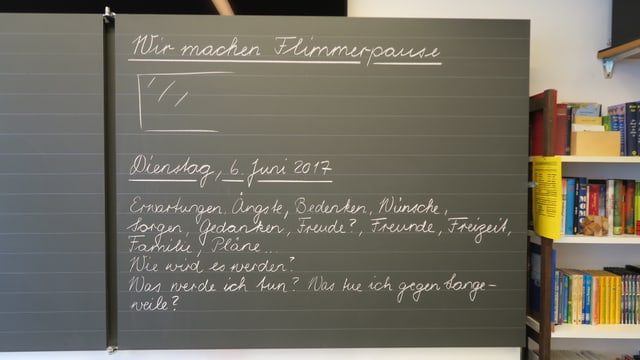 Wir machen Flimmerpause
Dienstag, 6. Juni 2017
Erwartungen, Ängste, Bedenken, Wünsche,
Sorgen, Gedanken, Freude?, Freunde, Freizeit,
Familie, Pläne...
Wie wird es werden?
Was werde ich tun? Was tue ich gegen Lange-
weile?
MOMO